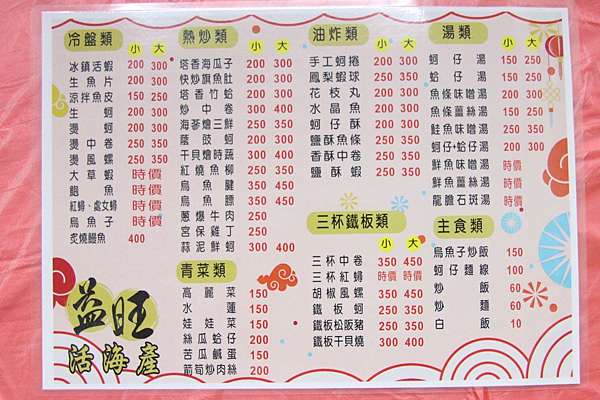 冷盤類
小 大
冰鎮活蝦 200 300
生魚片 200 300
涼拌魚皮 150 250
生蚵 200 300
燙蚵 200 300
燙中卷 250 350
燙風螺 250 350
大草蝦 時價
鮑魚 時價
紅蟳、處女蟳 時價
烏魚子 時價
炙燒鰻魚 400
益旺
活海產
熱炒類
小 大
塔香海瓜子 200 300
快炒旗魚肚 200 300
塔香竹蛤 200 300
炒中卷 300 400
海蔘燴三鮮 250 350
蔭豉蚵 200 300
干貝燴時蔬 300 400
紅燒魚柳 250 350
烏魚腱 350 450
烏魚鰾 350 450
蔥爆牛肉 250
宮保雞丁 250
蒜泥鮮蚵 300 400
青菜類
高麗菜 150
水蓮 150
娃娃菜 150
絲瓜蛤仔 200
苦瓜鹹蛋 150
箭筍炒肉絲 200
油炸類
小 大
手工蚵捲 200 300
鳳梨蝦球 250 350
花枝丸 200 300
水晶魚 200 300
蚵仔酥 200 300
鹽酥魚條 250 350
香酥中卷 250 350
鹽酥蝦 250 350
三杯鐵板類
小 大
三杯中卷 350 450
三杯紅蟳 時價
胡椒風螺 350 450
鐵板蚵 250 350
鐵板松阪豬 250 350
鐵板干貝燒 300 400
湯類
小 大
蚵仔湯 150 250
蛤仔湯 150 250
魚條味噌湯 200 300
魚條薑絲湯 150 250
鮭魚味噌湯 250 350
蚵仔+蛤仔湯 200 300
鮮魚味噌湯 時價
鮮魚薑絲湯 時價
龍膽石斑湯 時價
主食類
烏魚子炒飯 150
蚵仔麵線 100
炒飯 60
炒麵 60
白飯 10